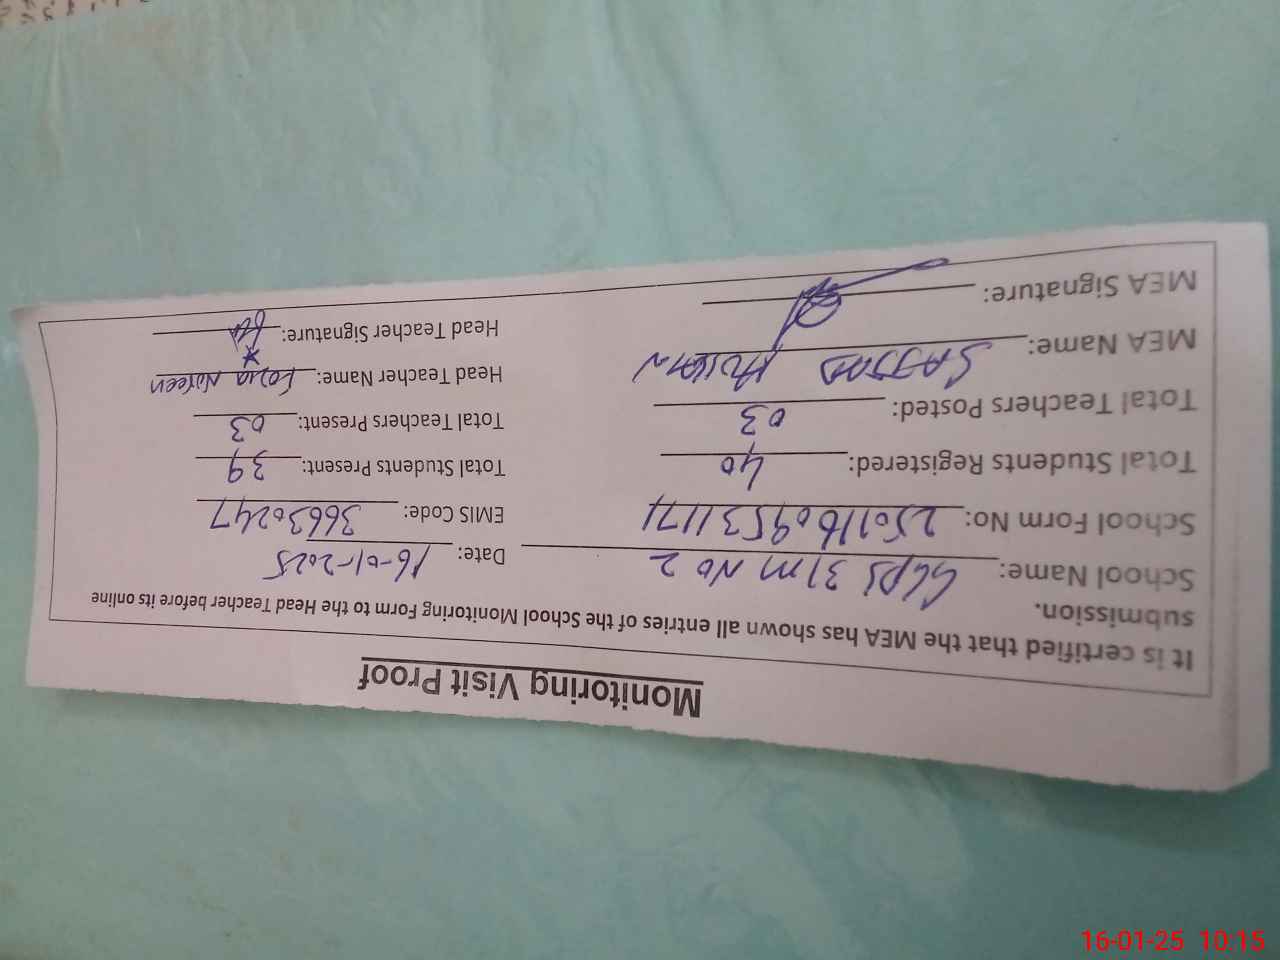 Monitoring Visit Proof
It is certified that the MEA has shown all entries of the School Monitoring Form to the Head Teacher before its online
submission.
School Name: GGPS 31M No 2 Date: 16-01-2025
School Form No: 250116095311171 EMIS Code: 36630247
Total Students Registered: 40 Total Students Present: 39
Total Teachers Posted: 03 Total Teachers Present: 03
MEA Name: SAJJAD HUSSAIN Head Teacher Name: Fozia Noreen
MEA Signature: Head Teacher Signature:
16-01-25 10:15